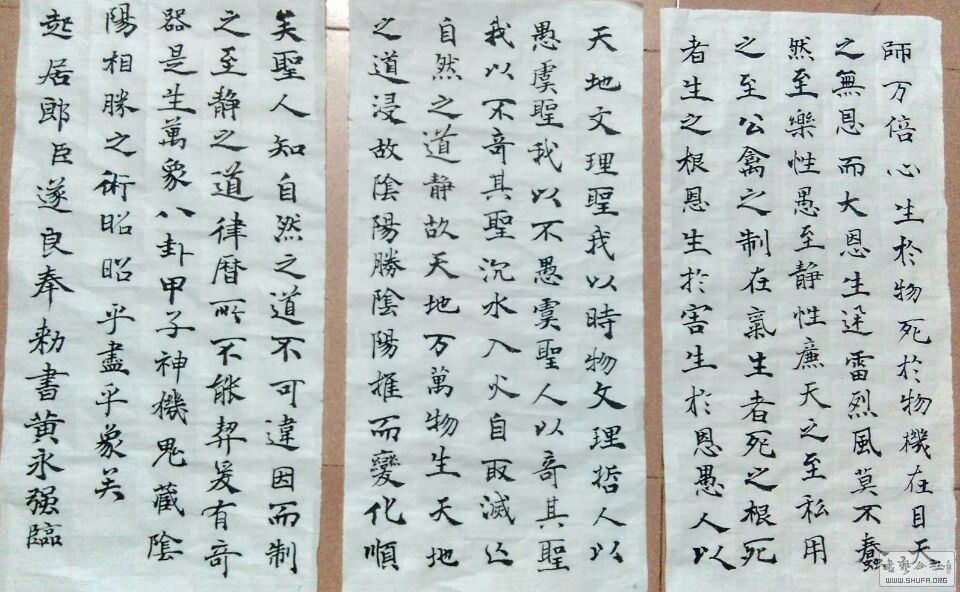 師万倍心生於物死於物機在目天
之無恩而大恩生迅雷烈風莫不蠢
然至樂性愚至静性廉天之至私用
之至公禽之制在氣生者死之根死
者生之根恩生於害生於恩愚人以
天地文理聖我以時物文理哲人以
愚虞聖我以不愚虞聖人以奇其聖
我以不奇其聖沉水入火自取滅亡
自然之道静故天地万萬物生天地
之道浸故陰陽勝陰陽推而變化順
矣聖人知自然之道不可違因而制
之至静之道律曆所不能契爰有奇
器是生萬象八卦甲子神機鬼藏陰
陽相勝之術昭昭乎盡乎象矣
起居郎臣遂良奉勅書黄永强臨
WWW.SHUFA.ORG